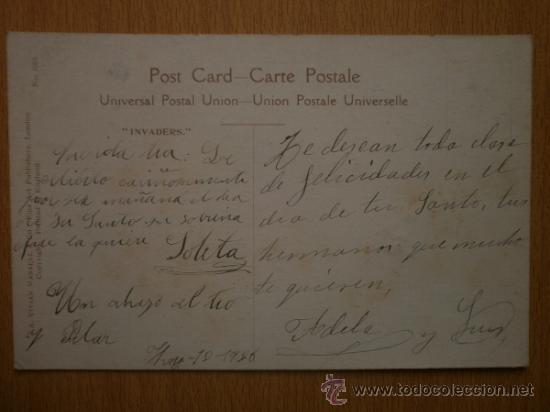 Post Card—Carte Postale
Universal Postal Union—Union Postale Universelle
"INVADERS."
Querida tia: Te
felicito cariñosamente
por ser mañana el dia
su Santo su sobrina
que la quiere
Loleta
Un abrazo al tio
y Pilar
1926
Te desean toda clase
de felicidades en el
dia de tu Santo, tus
hermanos que mucho
te quieren,
Adela y Luis
www.todocoleccion.net